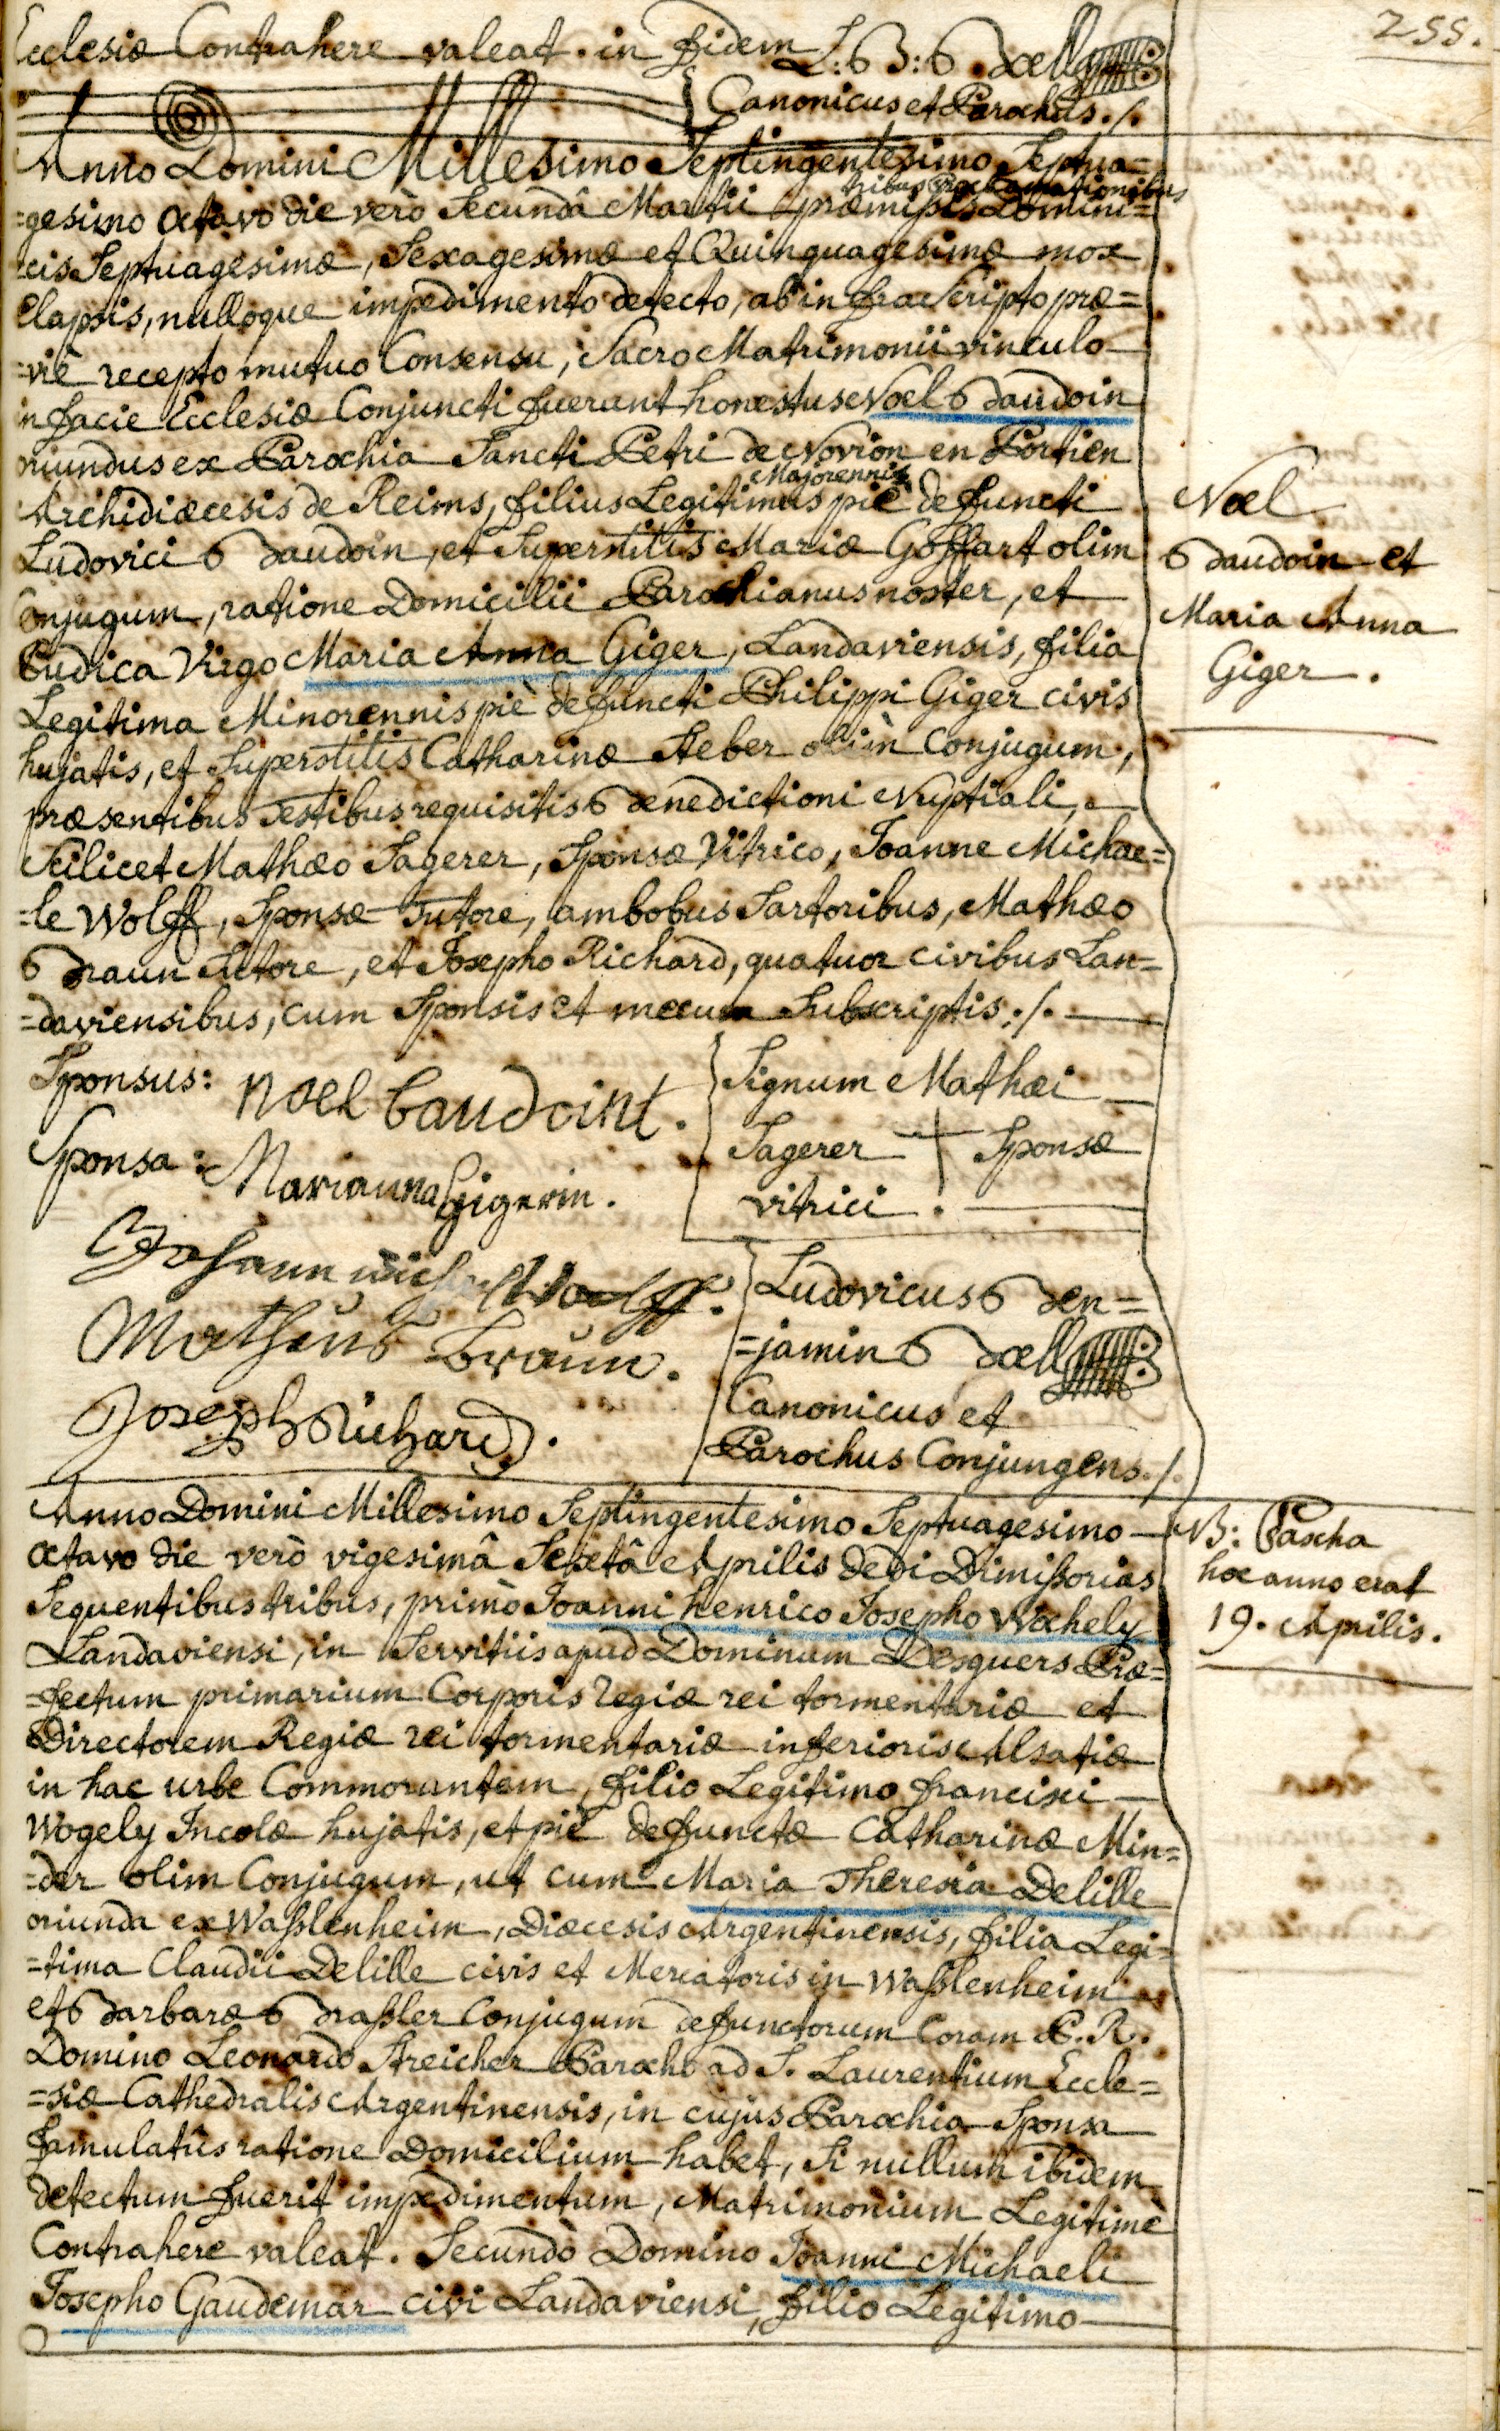 255.
Ecclesiæ Contrahere valeat. in fidem L: B: Boell
Canonicus et Parochus ./.
Anno Domini Millesimo Septingentesimo Septua=
tribus Proclamationibus
=gesimo octavo die verò Secundâ Martii præmissis Domini=
=cis Septuagesimæ, Sexagesimæ et Quinquagesimæ mox
elapsis, nulloque impedimento detecto, ab infra Scripto præ=
=viè recepto mutuo Consensu, Sacro Matrimonii vinculo
in facie Ecclesiæ Conjuncti fuerunt honestus Noel Baudoin
oriundus ex Parochia Sancti Petri de Novion en Portien
Majorennis
Archidiœcesis de Reims, filius Legitimus piè defuncti
Ludovici Baudoin, et Superstitis Mariæ Goffart olim
Conjugum, ratione Domicilii Parochianus noster, et
Pudica Virgo Maria Anna Giger, Landaviensis, filia
Legitima Minorennis piè defuncti Philippi Giger civis
hujatis, et Superstitis Catharinæ Steber olim Conjugum,
præsentibus Testibus requisitis Benedictioni Nuptiali,
Scilicet Mathæo Sagerer, Sponsæ Vitrico, Joanne Michae=
=le Wolff, Sponsæ Tutore, ambobus Sartoribus, Mathæo
Braun Sutore, et Josepho Richard, quatuor civibus Lan=
=daviensibus, cum Sponsis et mecum Subscriptis ./.
Noel
Baudoin et
Maria Anna
Giger.
Sponsus: noel baudoint.
Sponsa: Marianna Gigerin.
Johann Michel Wolff.
Matheus Braun.
Joseph Richard.
Signum Mathæi
Sagerer + Sponsæ
vitrici.
Ludovicus Ben=
=jamin Boell
Canonicus et
Parochus Conjungens ./.
Anno Domini Millesimo Septingentesimo Septuagesimo
octavo die verò vigesimâ Sextâ Aprilis dedi Dimissorias
Sequentibus tribus, primò Joanni henrico Josepho Wochely
Landaviensi, in Servitiis apud Dominum Desguers Præ=
=fectum primarium Corporis regiæ rei tormentariæ et
Directorem Regiæ rei tormentariæ inferioris Alsatiæ
in hac urbe Commorantem, filio Legitimo francisci
Wogely Incolæ hujatis, et piè defunctæ Catharinæ Min=
=der olim Conjugum, ut cum Maria Theresia Delille
oriunda ex Wasslenheim, Diœcesis Argentinensis, filia Legi=
=tima Claudii Delille civis et Mercatoris in Wasslenheim
et Barbaræ Brassler Conjugum defunctorum Coram P. R.
Domino Leonardo Streicher Parocho ad S. Laurentium Eccle=
=siæ Cathedralis Argentinensis, in cujus Parochia Sponsa
famulatûs ratione Domicilium habet, Si nullum ibidem
detectum fuerit impedimentum, Matrimonium Legitimè
Contrahere valeat. Secundò Domino Joanni Michaeli
Josepho Gaudemar civi Landaviensi, filio Legitimo
NB: Pascha
hoc anno erat
19. Aprilis.